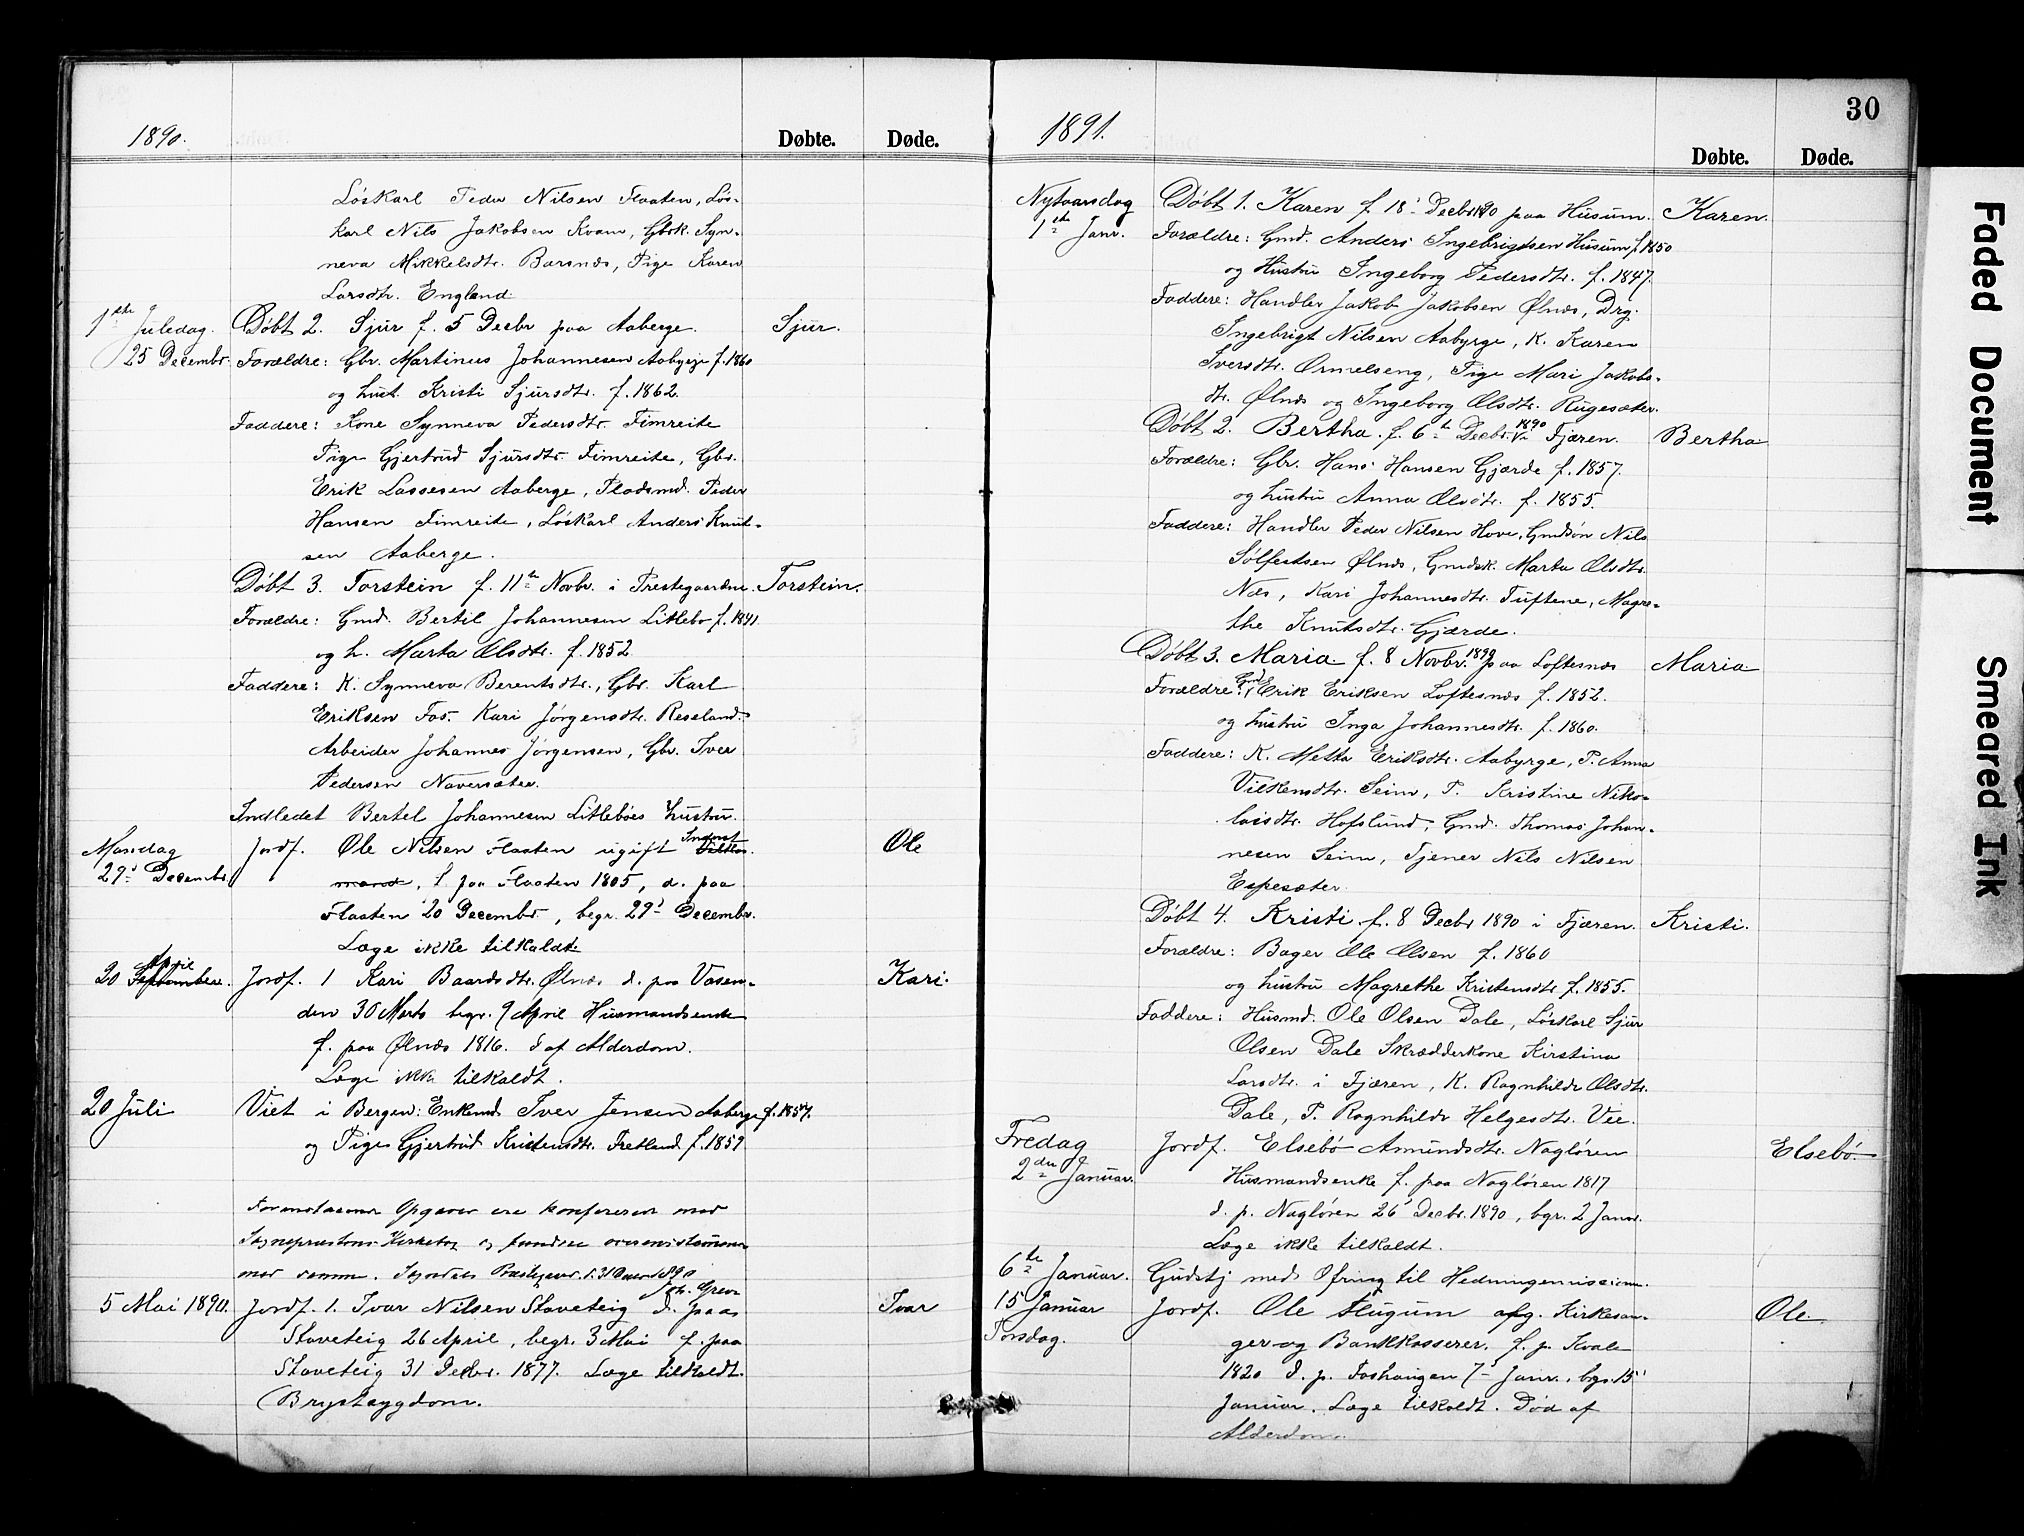 1890.
Døbte.
Døde.
Løskarl Peder Nilsen Flaaten, Løs-
karl Nils Jakobsen Kvam, Gbrk. Syn-
neva Mikkelsdtr. Barsnes, Pige Karen
Larsdtr. England
1ste Juledag.
25 Decembr.
Døbt 2. Sjur f. 5 Decbr paa Aaberge. Sjur.
Forældre: Gbr. Martinus Johannesen Aabyrge f. 1860
og hust. Kristi Sjursdtr. f. 1862.
Faddere: Kone Synneva Pedersdtr. Fimreite
Pige Gjertrud Sjursdtr. Fimreite, Gbr.
Erik Lassesen Aaberge, Pladsmd. Peder
Hansen Fimreite, Løskarl Anders Knut-
sen Aaberge.
Døbt 3. Torstein f. 11te Novbr. i Prestegaarden. Torstein.
Forældre: Gmd. Bertil Johannesen Litlebø f. 1841
og h. Marta Olsdtr. f. 1852
Faddere: K. Synneva Berentsdtr., Gbr. Karl
Eriksen Fos. Kari Jørgensdtr. Reseland.
Arbeider Johannes Jørgensen, Gbr. Iver
Pedersen Navarsete.
Indledet Bertel Johannesen Litlebøes hustru.
Mandag
29' Decembr.
Jordf. Ole Nilsen Flaaten ugift Inderst Ole
mand, f. paa Flaaten 1805, d. paa
Flaaten 20 Decembr., begr. 29' Decembr.
Læge ikke tilkaldt.
20 April September.
Jordf. 1 Kari Baardsdtr. Ølnes d. paa Vasen- Kari.
den 30 Marts begr. 9 April Husmandsenke
f. paa Ølnes 1816. d af Alderdom.
Læge ikke tilkaldt.
20 Juli
Viet i Bergen: Enkemd. Iver Jensen Aaberge f. 1857.
og Pige Gjertrud Kristensdtr. Fretland f. 1859
Foranstaaende Opgaver ere konfereret med
Sognepræstens Kirkebog og fundne overensstemmende
med samme. Sogndals Præstegaard d. 31 Decbr 1890
5 Mai 1890.
Jordf. 1. Ivar Nilsen Staveteig d. paa Ivar
Staveteig 26 April, begr. 3 Mai f. paa
Staveteig 31 Decbr. 1877. Læge tilkaldt.
Brystsygdom.
30
1891.
Døbte.
Døde.
Nytaarsdag
1ste Janr.
Døbt 1. Karen f. 18' Decbr. 90 paa Husum. Karen.
Forældre: Gmd. Anders Ingebrigtsen Husum f. 1850
og Hustru Ingeborg Pedersdtr. f. 1847.
Faddere: Handler Jakob Jakobsen Ølnes, Drg.
Ingebrigt Nilsen Aabyrge, K. Karen
Iversdtr. Ormelseng, Pige Mari Jakobs-
dtr. Ølnes og Ingeborg Olsdtr. Rugesæter.
Døbt 2. Bertha f. 6te Decbr. 1890 i Fjæren. Bertha
Forældre: Gbr. Hans Hansen Gjærde f. 1857.
og hustru Anna Olsdtr. f. 1855.
Faddere: Handler Peder Nilsen Hove, Gmdsøn Nils
Sølfestsen Ølnes, Gmdsk. Marta Olsdtr.
Næs, Kari Johannesdtr. Tuftene, Magre-
the Knutsdtr. Gjærde.
Døbt 3. Maria f. 8 Novbr. 1890 paa Loftesnes Maria
Forældre: Gmd. Erik Eriksen Loftesnes f. 1852.
og hustru Inga Johannesdtr. f. 1860.
Faddere: K. Metta Eriksdtr. Aabyrge, P. Anna
Vilkensdtr. Seim, P. Kristine Niko-
laisdtr. Hofslund, Gmd. Thomas Johan-
nesen Seim, Tjener Nils Nilsen
Espesæter.
Døbt 4. Kristi f. 8 Decbr 1890 i Fjæren. Kristi.
Forældre: Bager Ole Olsen f. 1860
og hustru Magrethe Kristensdtr. f. 1855.
Faddere: Husmd. Ole Olsen Dale, Løskarl Sjur
Olsen Dale Skrædderkone Kirstina
Larsdtr. i Fjæren, K. Ragnhild Olsdtr.
Dale, P. Ragnhild Helgesdtr. Vee.
Fredag
2den Januar.
Jordf. Elsebø Amundsdtr. Nagløren Elsebø.
Husmandsenke f. paa Nagløren 1817
d. p. Nagløren 26' Decbr. 1890, bgr. 2 Janr.
Læge ikke tilkaldt.
6te Januar.
Gudstj med Ofring til Hedningemissionen.
15 Januar
Torsdag.
Jordf. Ole Flugum afg. Kirkesan- Ole.
ger og Bankkasserer. f. p. Kvale
1820 d. p. Foshaugen 7' Janr., bgr. 15'
Januar. Læge tilkaldt. Død af
Alderdom.
Faded Document
Smeared Ink